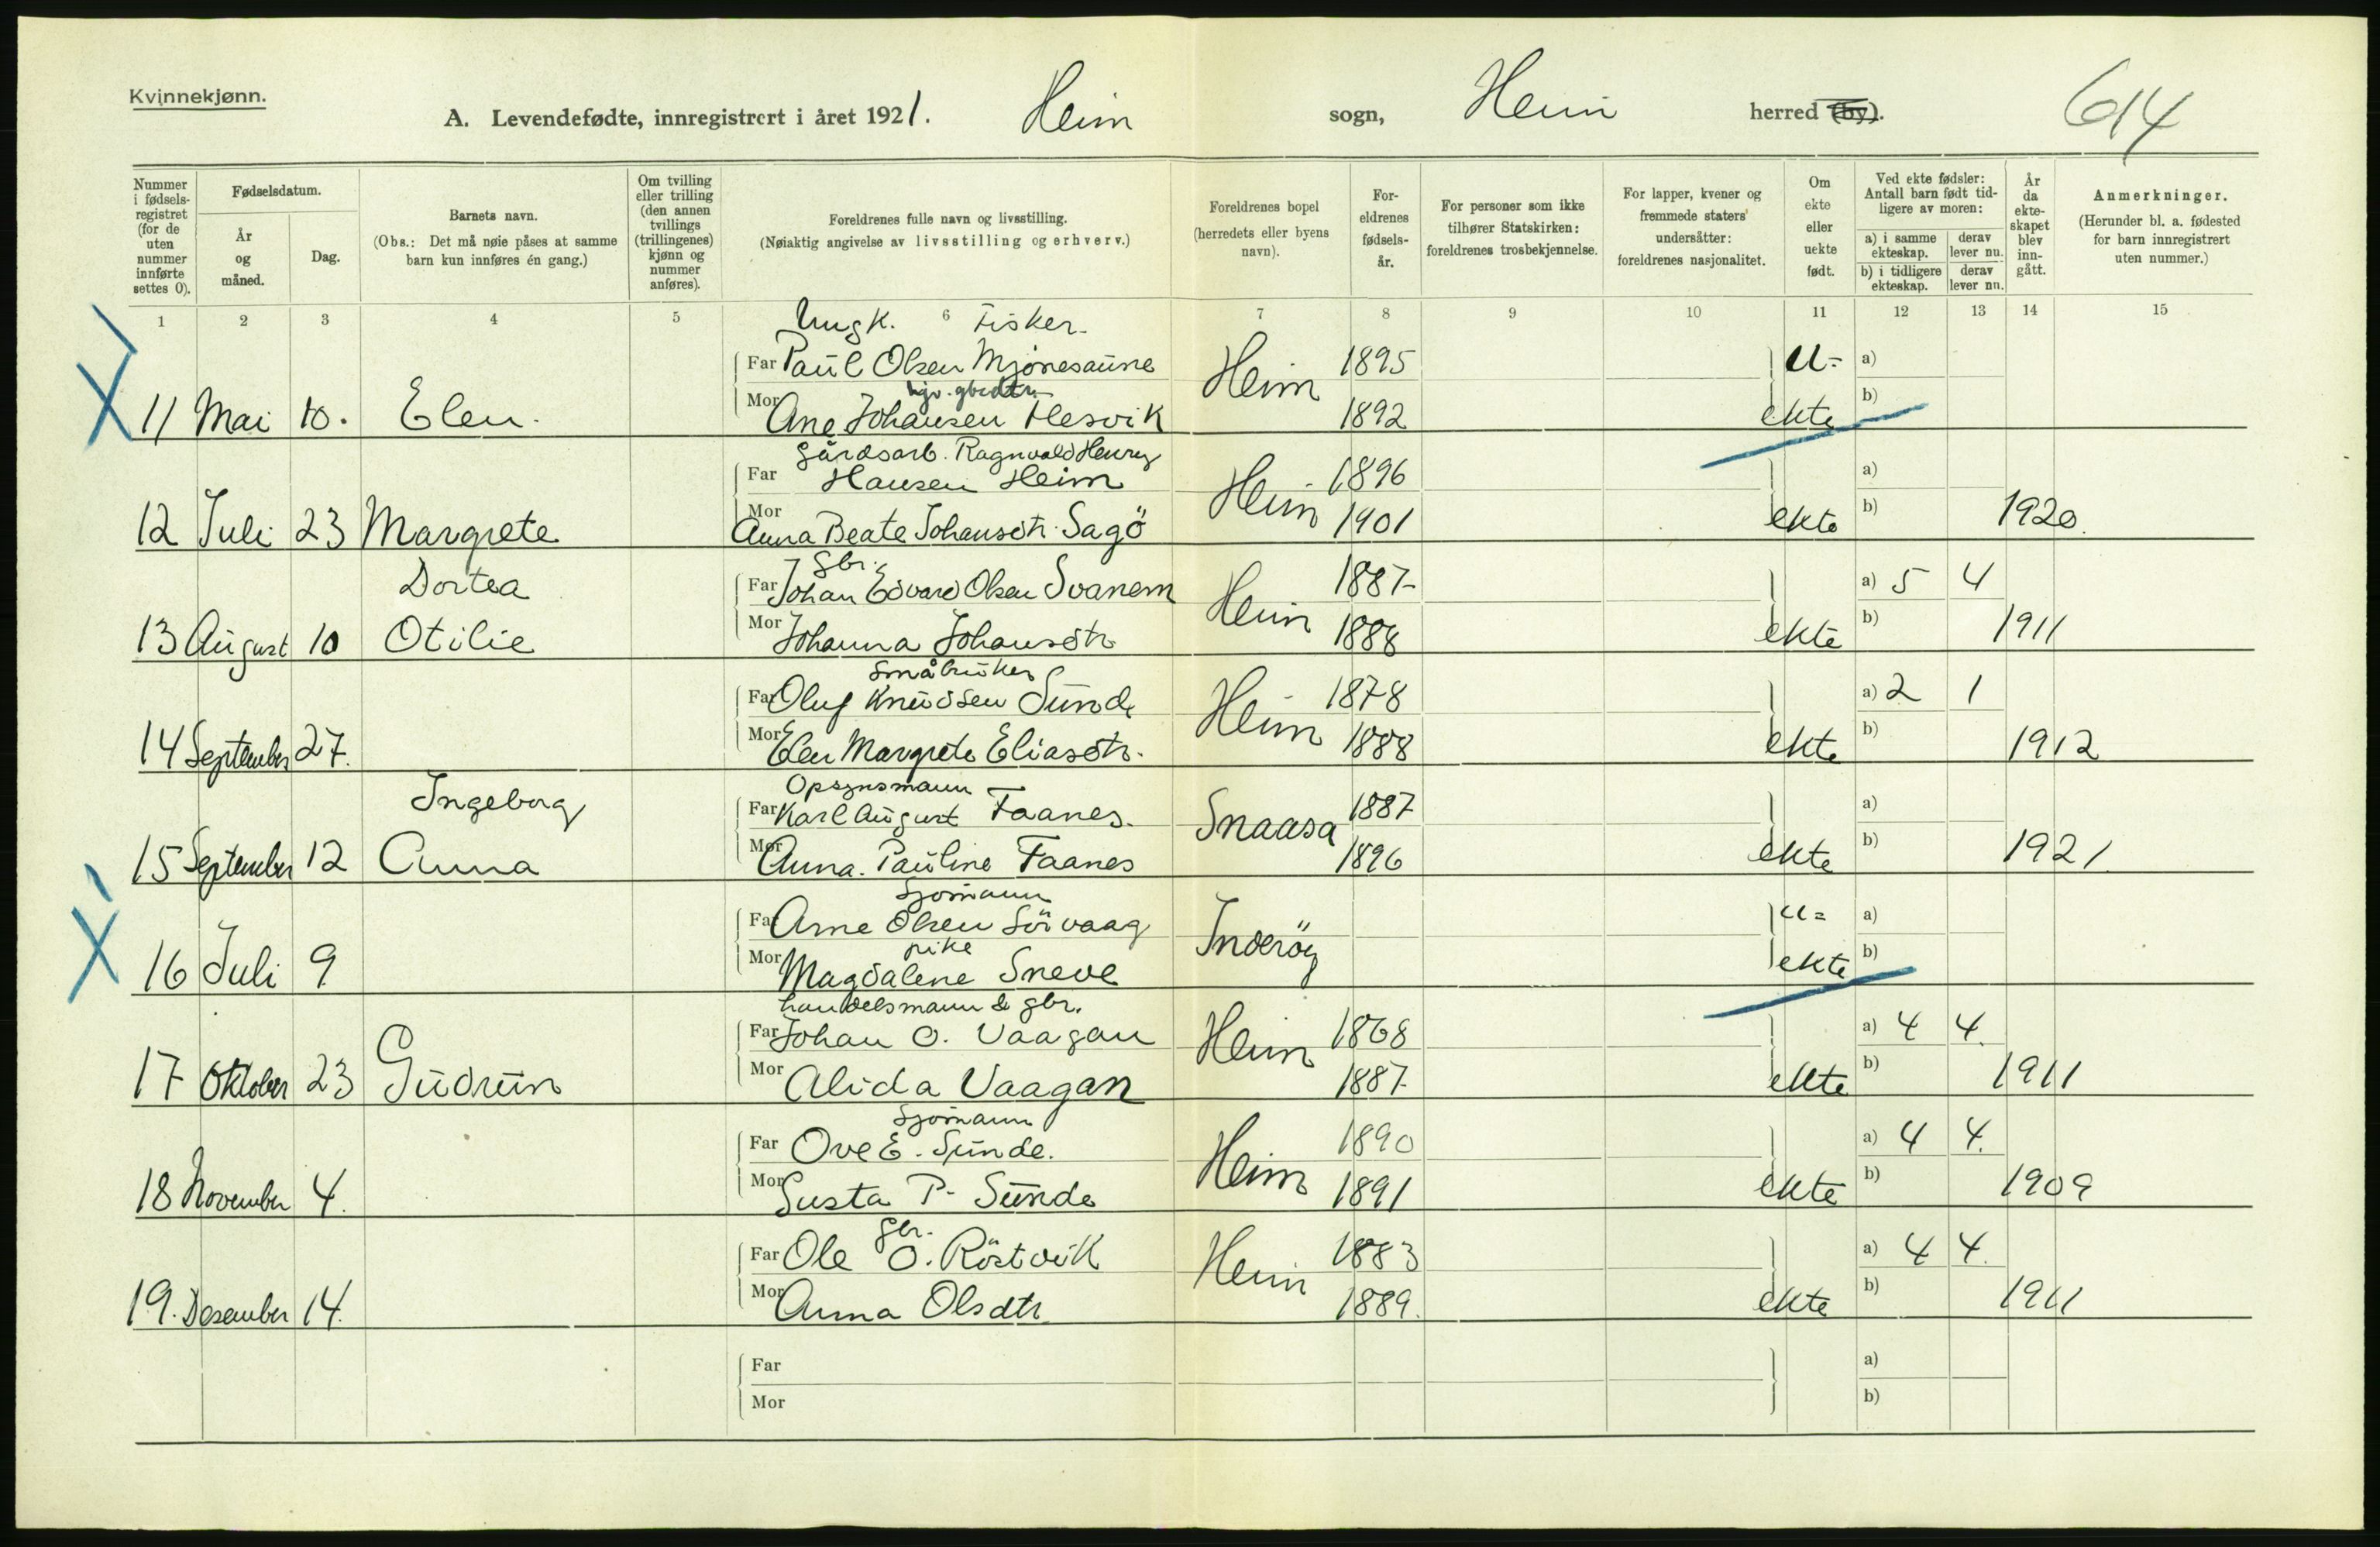 Kvinnekjønn.
A. Levendefødte, innregistrert i året 1921. Heim sogn, Heim herred (by).
614
Nummer i fødsels-registret (for de uten nummer innførte settes 0).
Fødselsdatum.
År og måned.
Dag.
Barnets navn.
(Obs.: Det må nøie påses at samme barn kun innføres én gang.)
Om tvilling eller trilling (den annen tvillings (trillingenes) kjønn og nummer anføres).
Foreldrenes fulle navn og livsstilling.
(Nøiaktig angivelse av livsstilling og erhverv.)
Foreldrenes bopel (herredets eller byens navn).
For-eldrenes fødsels-år.
For personer som ikke tilhører Statskirken: foreldrenes trosbekjennelse.
For lapper, kvener og fremmede staters undersåtter: foreldrenes nasjonalitet.
Om ekte eller uekte født.
Ved ekte fødsler: Antall barn født tid-ligere av moren:
a) i samme ekteskap. derav lever nu.
b) i tidligere ekteskap. derav lever nu.
År da ekte-skapet blev inn-gått.
Anmerkninger.
(Herunder bl. a. fødested for barn innregistrert uten nummer.)
1 2 3 4 5 6 7 8 9 10 11 12 13 14 15
Ungk. Fisker.
Far Paul Olsen Mjønesaune 1895 U- a)
Heim
hjv. gbrdtr.
11 Mai 10. Elen. Mor Ane Johansen Hesvik 1892 ekte b)
Gårdsarb. Ragnvald Henry
Far Hansen Heim 1896 a)
Heim
12 Juli 23 Margrete Mor Anna Beate Johansdtr. Sagö 1901 ekte b) 1920.
gbr.
Dortea Far Johan Edvard Olsen Svanem 1887- a) 5 4
Heim
13 August 10 Otilie Mor Johanna Johansdtr 1888 ekte b) 1911
Småbruker
Far Oluf Knudsen Sunde 1878 a) 2 1
Heim
14 September 27. Mor Elen Margrete Eliasdtr. 1888 ekte b) 1912
Opsynsmann
Ingeborg Far Karl August Faanes. 1887 a)
Snaasa
15 September 12 Anna Mor Anna. Pauline Faanes 1896 ekte b) 1921.
Sjömann
Far Arne Olsen Sörvaag u= a)
Inderöy
pike
16 Juli 9 Mor Magdalene Sneve ekte b)
handelsmann & gbr.
Far Johan O. Vaagan 1868 a) 4 4.
Heim
17 Oktober 23 Gudrun Mor Alida Vaagan 1887- ekte b) 1911
Sjömann
Far Ove E. Sunde. 1890 a) 4 4.
Heim
18 November 4. Mor Susta P- Sunde 1891 ekte b) 1909
gbr.
Far Ole O. Röstvik 1883 a) 4 4.
Heim
19. Desember 14. Mor Anna Olsdtr 1889. ekte b) 1911
Far a)
Mor b)